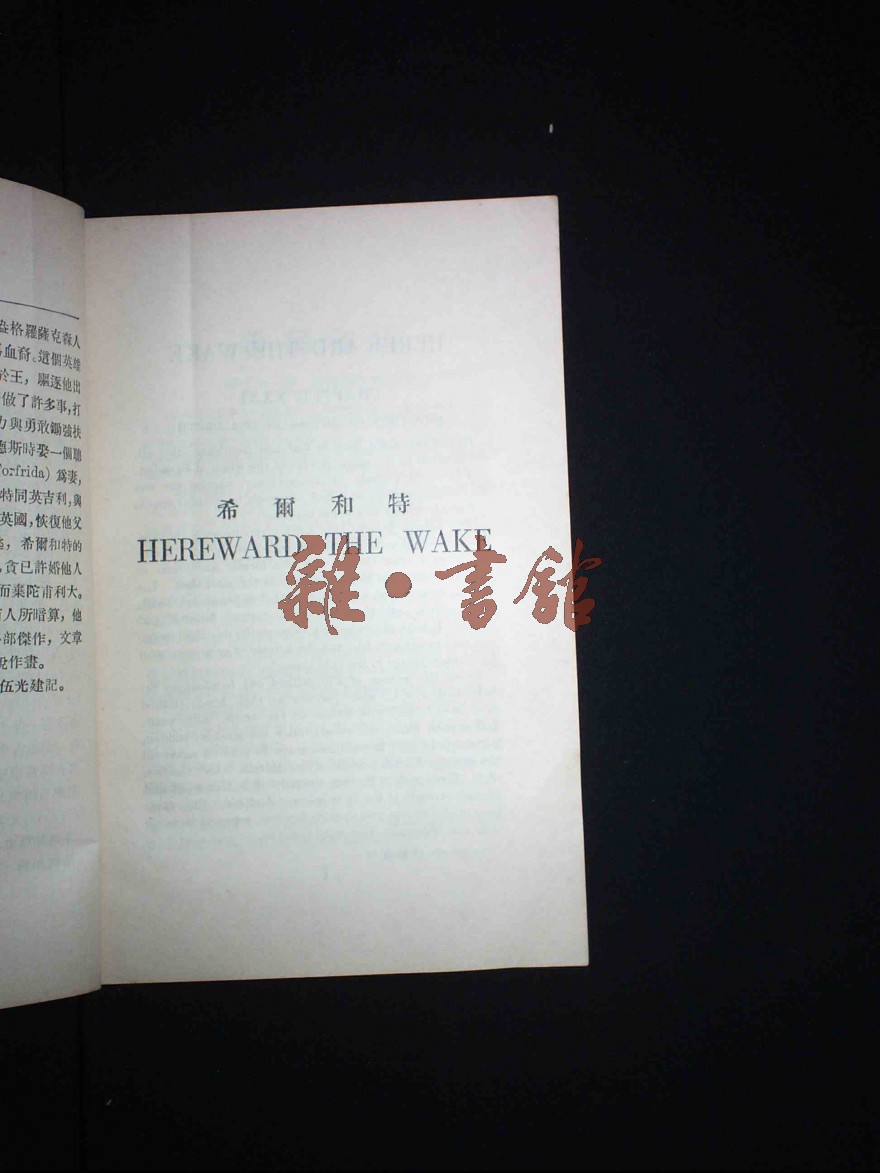 格羅薩克森人
血裔。這個英雄
於王，驅逐他出
做了許多事，打
力與勇敢鋤強扶
德斯時娶一個聰
orfrida) 爲妻，
特同英吉利，與
英國，恢復他父
希爾和特的
貪已許婚他人
而棄陀甫利大。
人所暗算，他
部傑作，文章
作畫。
伍光建記。
希爾和特
HEREWARD THE WAKE
雜·書館